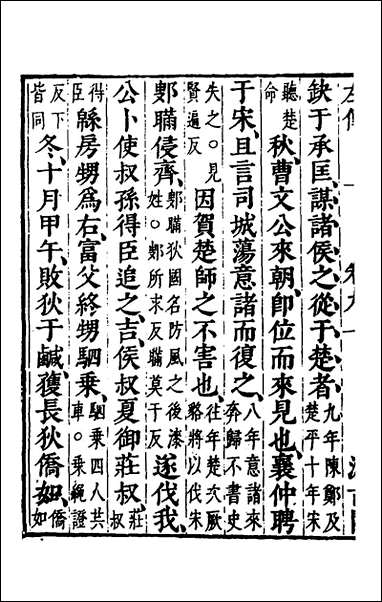 缺于承匡、謀諸侯之從于楚者、九年陳鄭及楚平十年宋
聽楚命秋、曹文公來朝、卽位而來見也、襄仲聘
于宋、且言司城蕩意諸而復之、八年意諸來奔歸不書史
失之○見賢遍反因賀楚師之不害也、往年楚次厥貉將以伐宋
鄋瞞侵齊、鄋瞞狄國名防風之後漆姓○鄋所求反瞞莫干反遂伐我、
公卜使叔孫得臣追之、吉、侯叔夏御莊叔、莊叔
得臣緜房甥爲右、富父終甥駟乘、駟乘四人共車○乘繩證
反下皆同冬、十月甲午、敗狄于鹹、獲長狄僑如、僑如